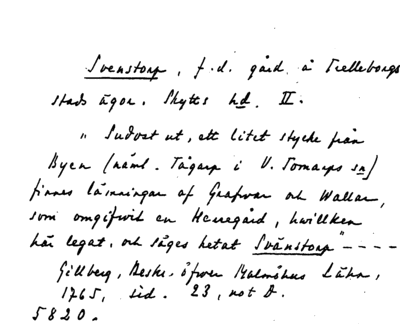 Svenstorp, f.d. gård å Trelleborgs
stads ägor. Skytts hd. II.
" Sudost ut, ett litet stycke från
Byen (näml. Tågarp i V. Tomarps sn)
finnes lämningar af Grafwar och Wallar,
som omgifvit en Herregård, hwilken
här legat, och säges hetat Svänstorp" ----
Gillberg, Beskr. öfwer Malmöhus Lähn,
1765, sid. 23, not D.
5820.